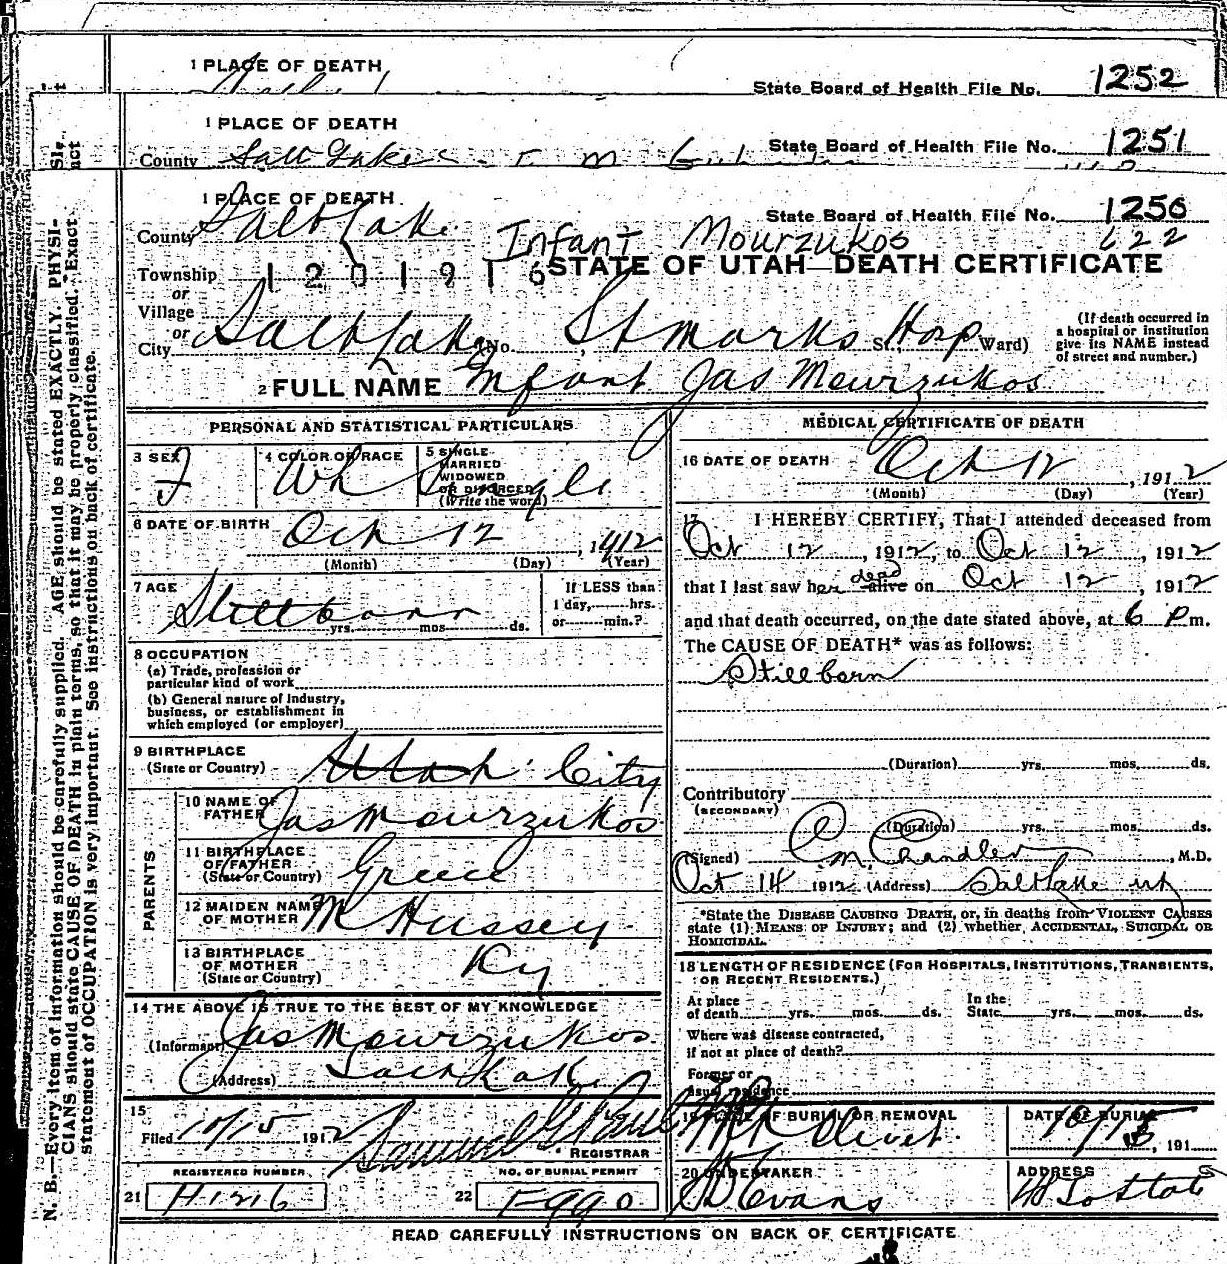 1 PLACE OF DEATH
State Board of Health File No. 1252
1 PLACE OF DEATH
County Salt Lake State Board of Health File No. 1251
1 PLACE OF DEATH
State Board of Health File No. 1250
County Salt Lake Infant Mourzukos 622
Township 1201916 STATE OF UTAH—DEATH CERTIFICATE
or
Village
or
City Salt Lake (No. , St Marks St. Hosp Ward)
(If death occurred in a hospital or institution give its NAME instead of street and number.)
2 FULL NAME Infant Jas Mourzukos
PERSONAL AND STATISTICAL PARTICULARS
3 SEX F
4 COLOR OR RACE Wh
5 SINGLE MARRIED WIDOWED OR DIVORCED (Write the word) Single
6 DATE OF BIRTH Oct 12 , 1912
(Month) (Day) (Year)
7 AGE Stillborn
yrs. mos. ds.
If LESS than 1 day, hrs. or min.?
8 OCCUPATION
(a) Trade, profession or
particular kind of work
(b) General nature of Industry,
business, or establishment in
which employed (or employer)
9 BIRTHPLACE
(State or Country) Utah City
PARENTS
10 NAME OF FATHER Jas Mourzukos
11 BIRTHPLACE OF FATHER (State or Country) Greece
12 MAIDEN NAME OF MOTHER M Hussey
13 BIRTHPLACE OF MOTHER (State or Country) Ky
14 THE ABOVE IS TRUE TO THE BEST OF MY KNOWLEDGE
(Informant) Jas Mourzukos
(Address) Salt Lake
15
Filed 10/15 1912 Samuel G Paul
REGISTRAR
REGISTERED NUMBER
21 H1216
NO. OF BURIAL PERMIT
22 F990
MEDICAL CERTIFICATE OF DEATH
16 DATE OF DEATH Oct 12 , 1912
(Month) (Day) (Year)
17 I HEREBY CERTIFY, That I attended deceased from
Oct 12 , 1912, to Oct 12 , 1912
that I last saw her dead alive on Oct 12 , 1912
and that death occurred, on the date stated above, at 6 P m.
The CAUSE OF DEATH* was as follows:
Stillborn
(Duration) yrs. mos. ds.
Contributory
(SECONDARY)
(Duration) yrs. mos. ds.
(Signed) C M Chandler , M.D.
Oct 14 1912 (Address) Salt Lake Ut
*State the DISEASE CAUSING DEATH, or, in deaths from VIOLENT CAUSES
state (1) MEANS OF INJURY; and (2) whether ACCIDENTAL, SUICIDAL OR
HOMICIDAL.
18 LENGTH OF RESIDENCE (FOR HOSPITALS, INSTITUTIONS, TRANSIENTS,
OR RECENT RESIDENTS.)
At place of death yrs. mos. ds. In the State yrs. mos. ds.
Where was disease contracted,
if not at place of death?
Former or
usual residence
19 PLACE OF BURIAL OR REMOVAL
Mt Olivet
DATE OF BURIAL
10/15 , 191
20 UNDERTAKER
Evans
ADDRESS
48 So State
READ CAREFULLY INSTRUCTIONS ON BACK OF CERTIFICATE
N. B.—Every item of information should be carefully supplied. AGE should be stated EXACTLY. PHYSI-
CIANS should state CAUSE OF DEATH in plain terms, so that it may be properly classified. Exact
statement of OCCUPATION is very important. See instructions on back of certificate.